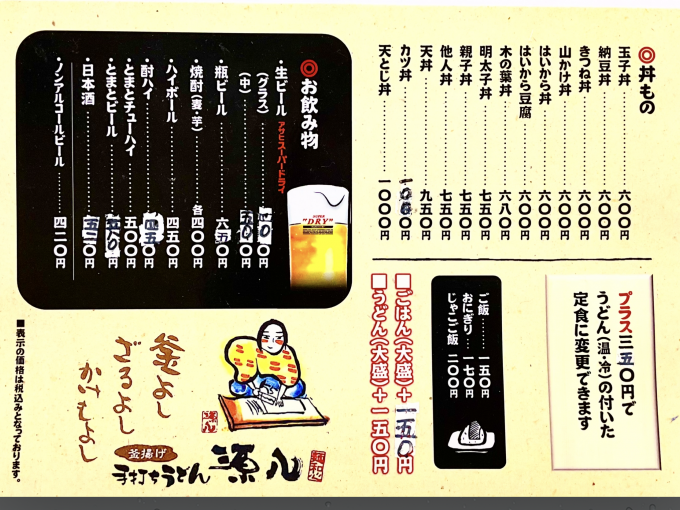 ◎丼もの
玉子丼…………六〇〇円
納豆丼…………六〇〇円
きつね丼…………六〇〇円
山かけ丼…………六〇〇円
はいから丼…………六〇〇円
はいから豆腐…………六〇〇円
木の葉丼…………六八〇円
明太子丼…………七五〇円
親子丼…………七五〇円
他人丼…………七五〇円
天丼…………九五〇円
カツ丼…………一〇〇〇円
天とじ丼…………一〇〇〇円
プラス三五〇円で
うどん(温・冷)の付いた
定食に変更できます
ご飯………一五〇円
おにぎり…一七〇円
じゃこご飯 二〇〇円
■ごはん(大盛)+一五〇円
■うどん(大盛)+一五〇円
◎お飲み物
・生ビール アサヒスーパードライ
(グラス)…………円
(中)…………円
・瓶ビール…………六五〇円
・焼酎(麦・芋)…………各四〇〇円
・ハイボール…………四五〇円
・酎ハイ…………四五〇円
・とまとチューハイ…………五〇〇円
・とまとビール…………円
・日本酒…………五二〇円
・ノンアルコールビール…………四二〇円
SUPER
"DRY"
釜よし
ざるよし
かけもよし
釜揚げ
手打ちうどん 源八
■表示の価格は税込みとなっております。